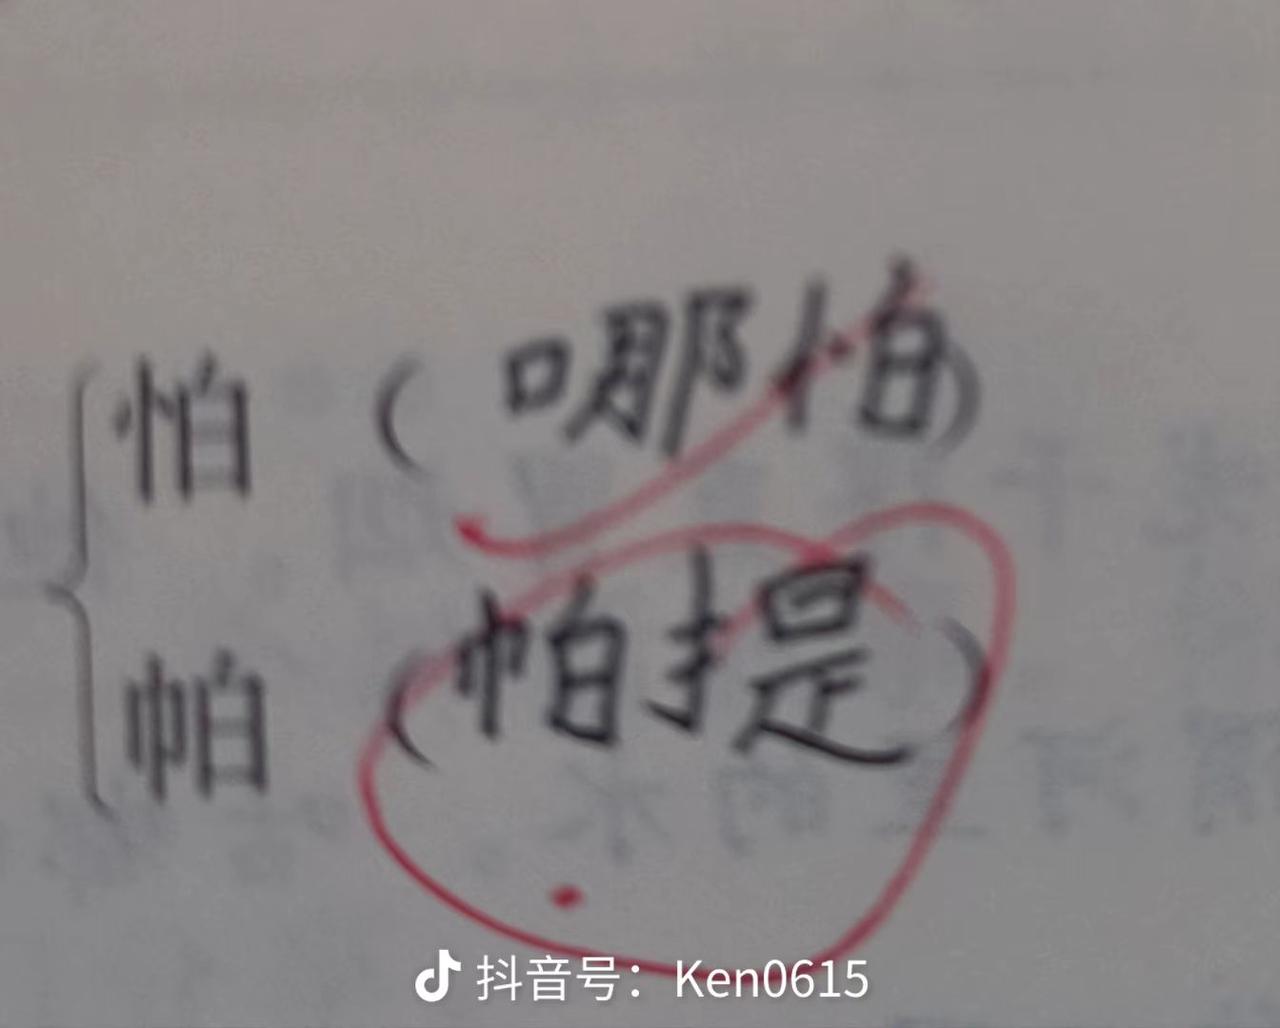 怕（哪怕）
帕（帕提）
抖音号：Ken0615